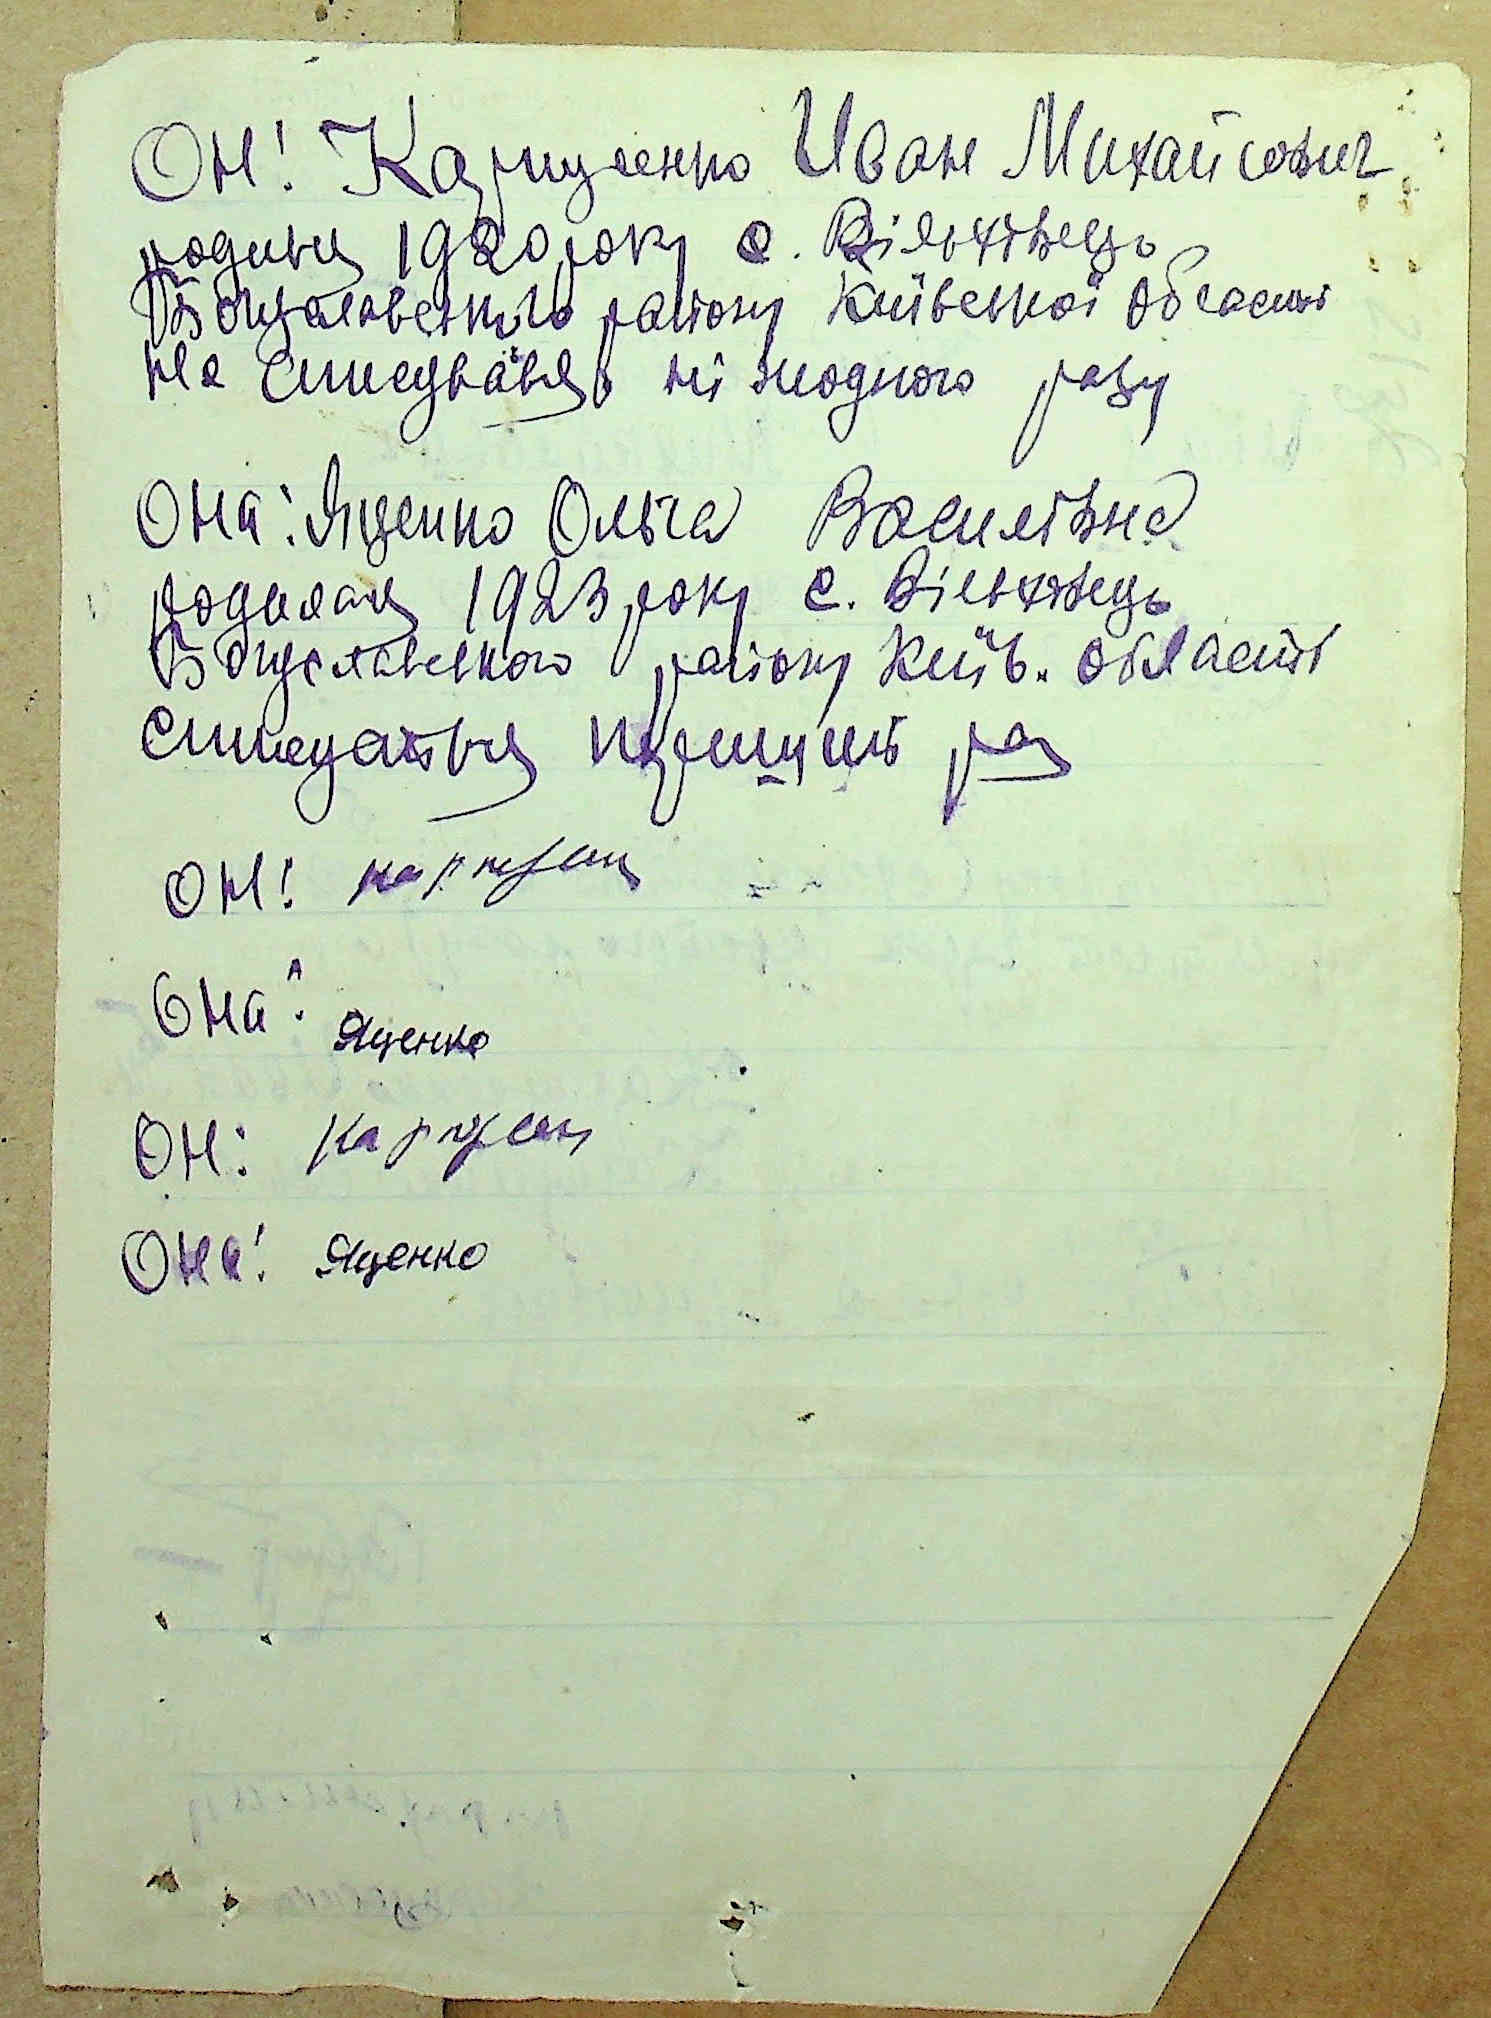 Он: Карпусенко Иван Михайлович
родився 1920 року с. Вільховець
Богуславського району Київської області
Не слюбувався ні жодного разу
Она: Яценко Ольга Василівна
родилася 1923 року с. Вільховець
Богуславського району Київ. області
перший раз
Он:
Она: Яценко
Он:
Она: Яценко